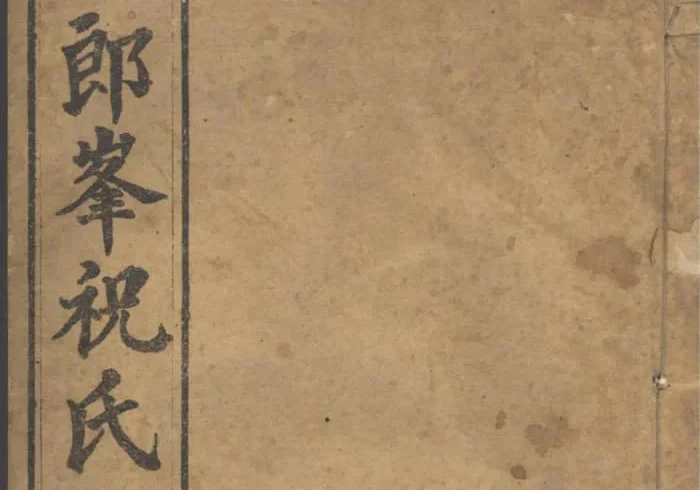 郎峯祝氏